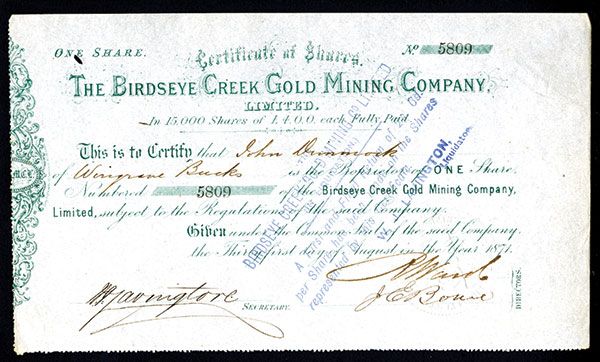 ONE SHARE.
Certificate of Shares.
No 5809
THE BIRDSEYE CREEK GOLD MINING COMPANY,
LIMITED.
In 15,000 Shares of £4.0.0. each Fully Paid.
This is to Certify that John Dimmock
of Wingrave Bucks is the Proprietor of ONE Share
Numbered 5809 of the Birdseye Creek Gold Mining Company,
Limited, subject to the Regulations of the said Company.
Given under the Common Seal of the said Company,
the Thirty first day of August in the Year 1871.
SECRETARY.
DIRECTORS.
BIRDSEYE CREEK
LIMITED
A First and Final
of
per Share has been
the Shares
represented by this
W.
Liquidator